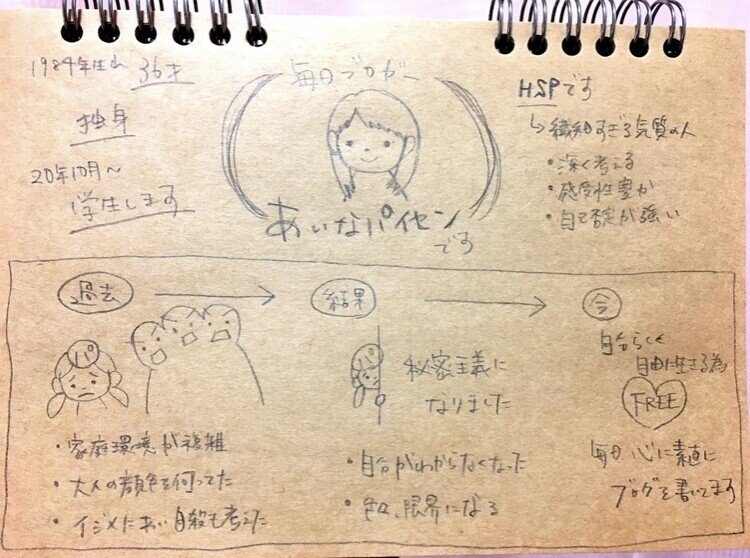 1984年生れ 36才
独身
20年10月〜
学生します
毎日ブロガー
あいなパイセン
です
HSPです
↳繊細すぎる気質の人
・深く考える
・感受性豊か
・自己否定が強い
過去 → 結果 → 今
パ
・家庭環境が複雑
・大人の顔色を伺ってた
・イジメにあい自殺も考えた
秘密主義に
なりました
・自分がわからなくなった
・色々、限界になる
自分らしく
自由に生きる為
FREE
毎日 心に素直に
ブログを書いてます